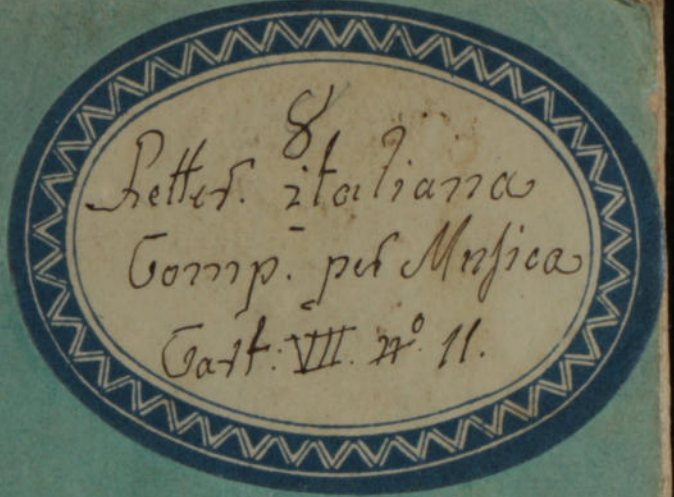 8
Letter. italiana
Comp. per Musica
Cart: VII. nº. 11.